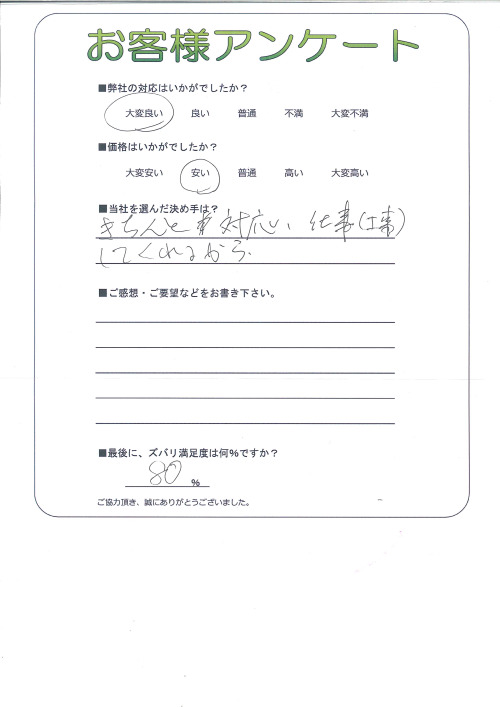 お客様アンケート
■弊社の対応はいかがでしたか？
大変良い 良い 普通 不満 大変不満
■価格はいかがでしたか？
大変安い 安い 普通 高い 大変高い
■当社を選んだ決め手は？
きちんと 対応し、仕事(工事)
してくれるから.
■ご感想・ご要望などをお書き下さい。
■最後に、ズバリ満足度は何%ですか？
80 %
ご協力頂き、誠にありがとうございました。